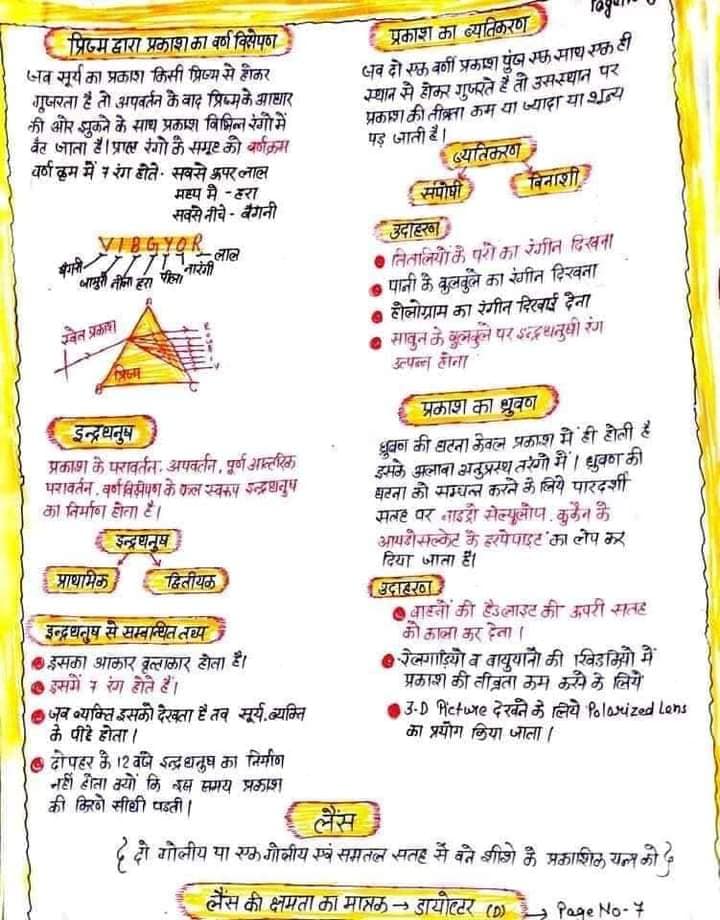 प्रिज्म द्वारा प्रकाश का वर्ण विक्षेपण
जब सूर्य का प्रकाश किसी प्रिज्म से होकर
गुजरता है तो अपवर्तन के बाद प्रिज्म के आधार
की ओर झुकने के साथ प्रकाश विभिन्न रंगो में
बँट जाता है। प्राप्त रंगो के समूह को वर्णक्रम
वर्ण क्रम में 7 रंग होते- सबसे ऊपर लाल
मध्य मे - हरा
सबसे नीचे - बैगनी
VIBGYOR
बैगनी जामुनी नीला हरा पीला नारंगी लाल
श्वेत प्रकाश
A
प्रिज्म
B C
R
V
इन्द्रधनुष
प्रकाश के परावर्तन, अपवर्तन, पूर्ण आन्तरिक
परावर्तन, वर्ण विक्षेपण के फल स्वरूप इन्द्रधनुष
का निर्माण होता है।
इन्द्रधनुष
प्राथमिक द्वितीयक
इन्द्रधनुष से सम्बन्धित तथ्य
इसका आकार वृत्ताकार होता है।
इसमें 7 रंग होते है।
जब व्यक्ति इसको देखता है तब सूर्य, व्यक्ति
के पीछे होता।
दोपहर के 12 बजे इन्द्रधनुष का निर्माण
नहीं होता क्यों कि इस समय प्रकाश
की किरणे सीधी पडती।
प्रकाश का व्यतिकरण
जब दो एक वर्णी प्रकाश पुंज एक साथ एक ही
स्थान से होकर गुजरते है तो उस स्थान पर
प्रकाश की तीव्रता कम या ज्यादा या शून्य
पड़ जाती है।
व्यतिकरण
संपोषी विनाशी
उदाहरण
तितलियों के परो का रंगीन दिखना
पानी के बुलबुले का रंगीन दिखना
होलोग्राम का रंगीन दिखाई देना
साबुन के बुलबुले पर इन्द्रधनुषी रंग
उत्पन्न होना
प्रकाश का ध्रुवण
ध्रुवण की घटना केवल प्रकाश में ही होती है
इसके अलावा अनुप्रस्थ तरंगो में। ध्रुवण की
घटना को सम्पन्न करने के लिये पारदर्शी
सतह पर नाइट्रो सेल्यूलोज, कुनैन के
आयडोसल्फेट के हरपेपाइट का लेप कर
दिया जाता है।
उदाहरण
वाहनों की हैडलाइट की ऊपरी सतह
को काला कर देना।
रेलगाड़ियो व वायुयानो की खिडकियो में
प्रकाश की तीव्रता कम करने के लिये
3-D Picture देखने के लिये Polarized Lens
का प्रयोग किया जाता।
लैंस
{ दो गोलीय या एक गोलीय एवं समतल सतह से बने शीशे के प्रकाशिक यन्त्र को }
लैंस की क्षमता का मात्रक → डायोप्टर (D)
→ Page No- 7